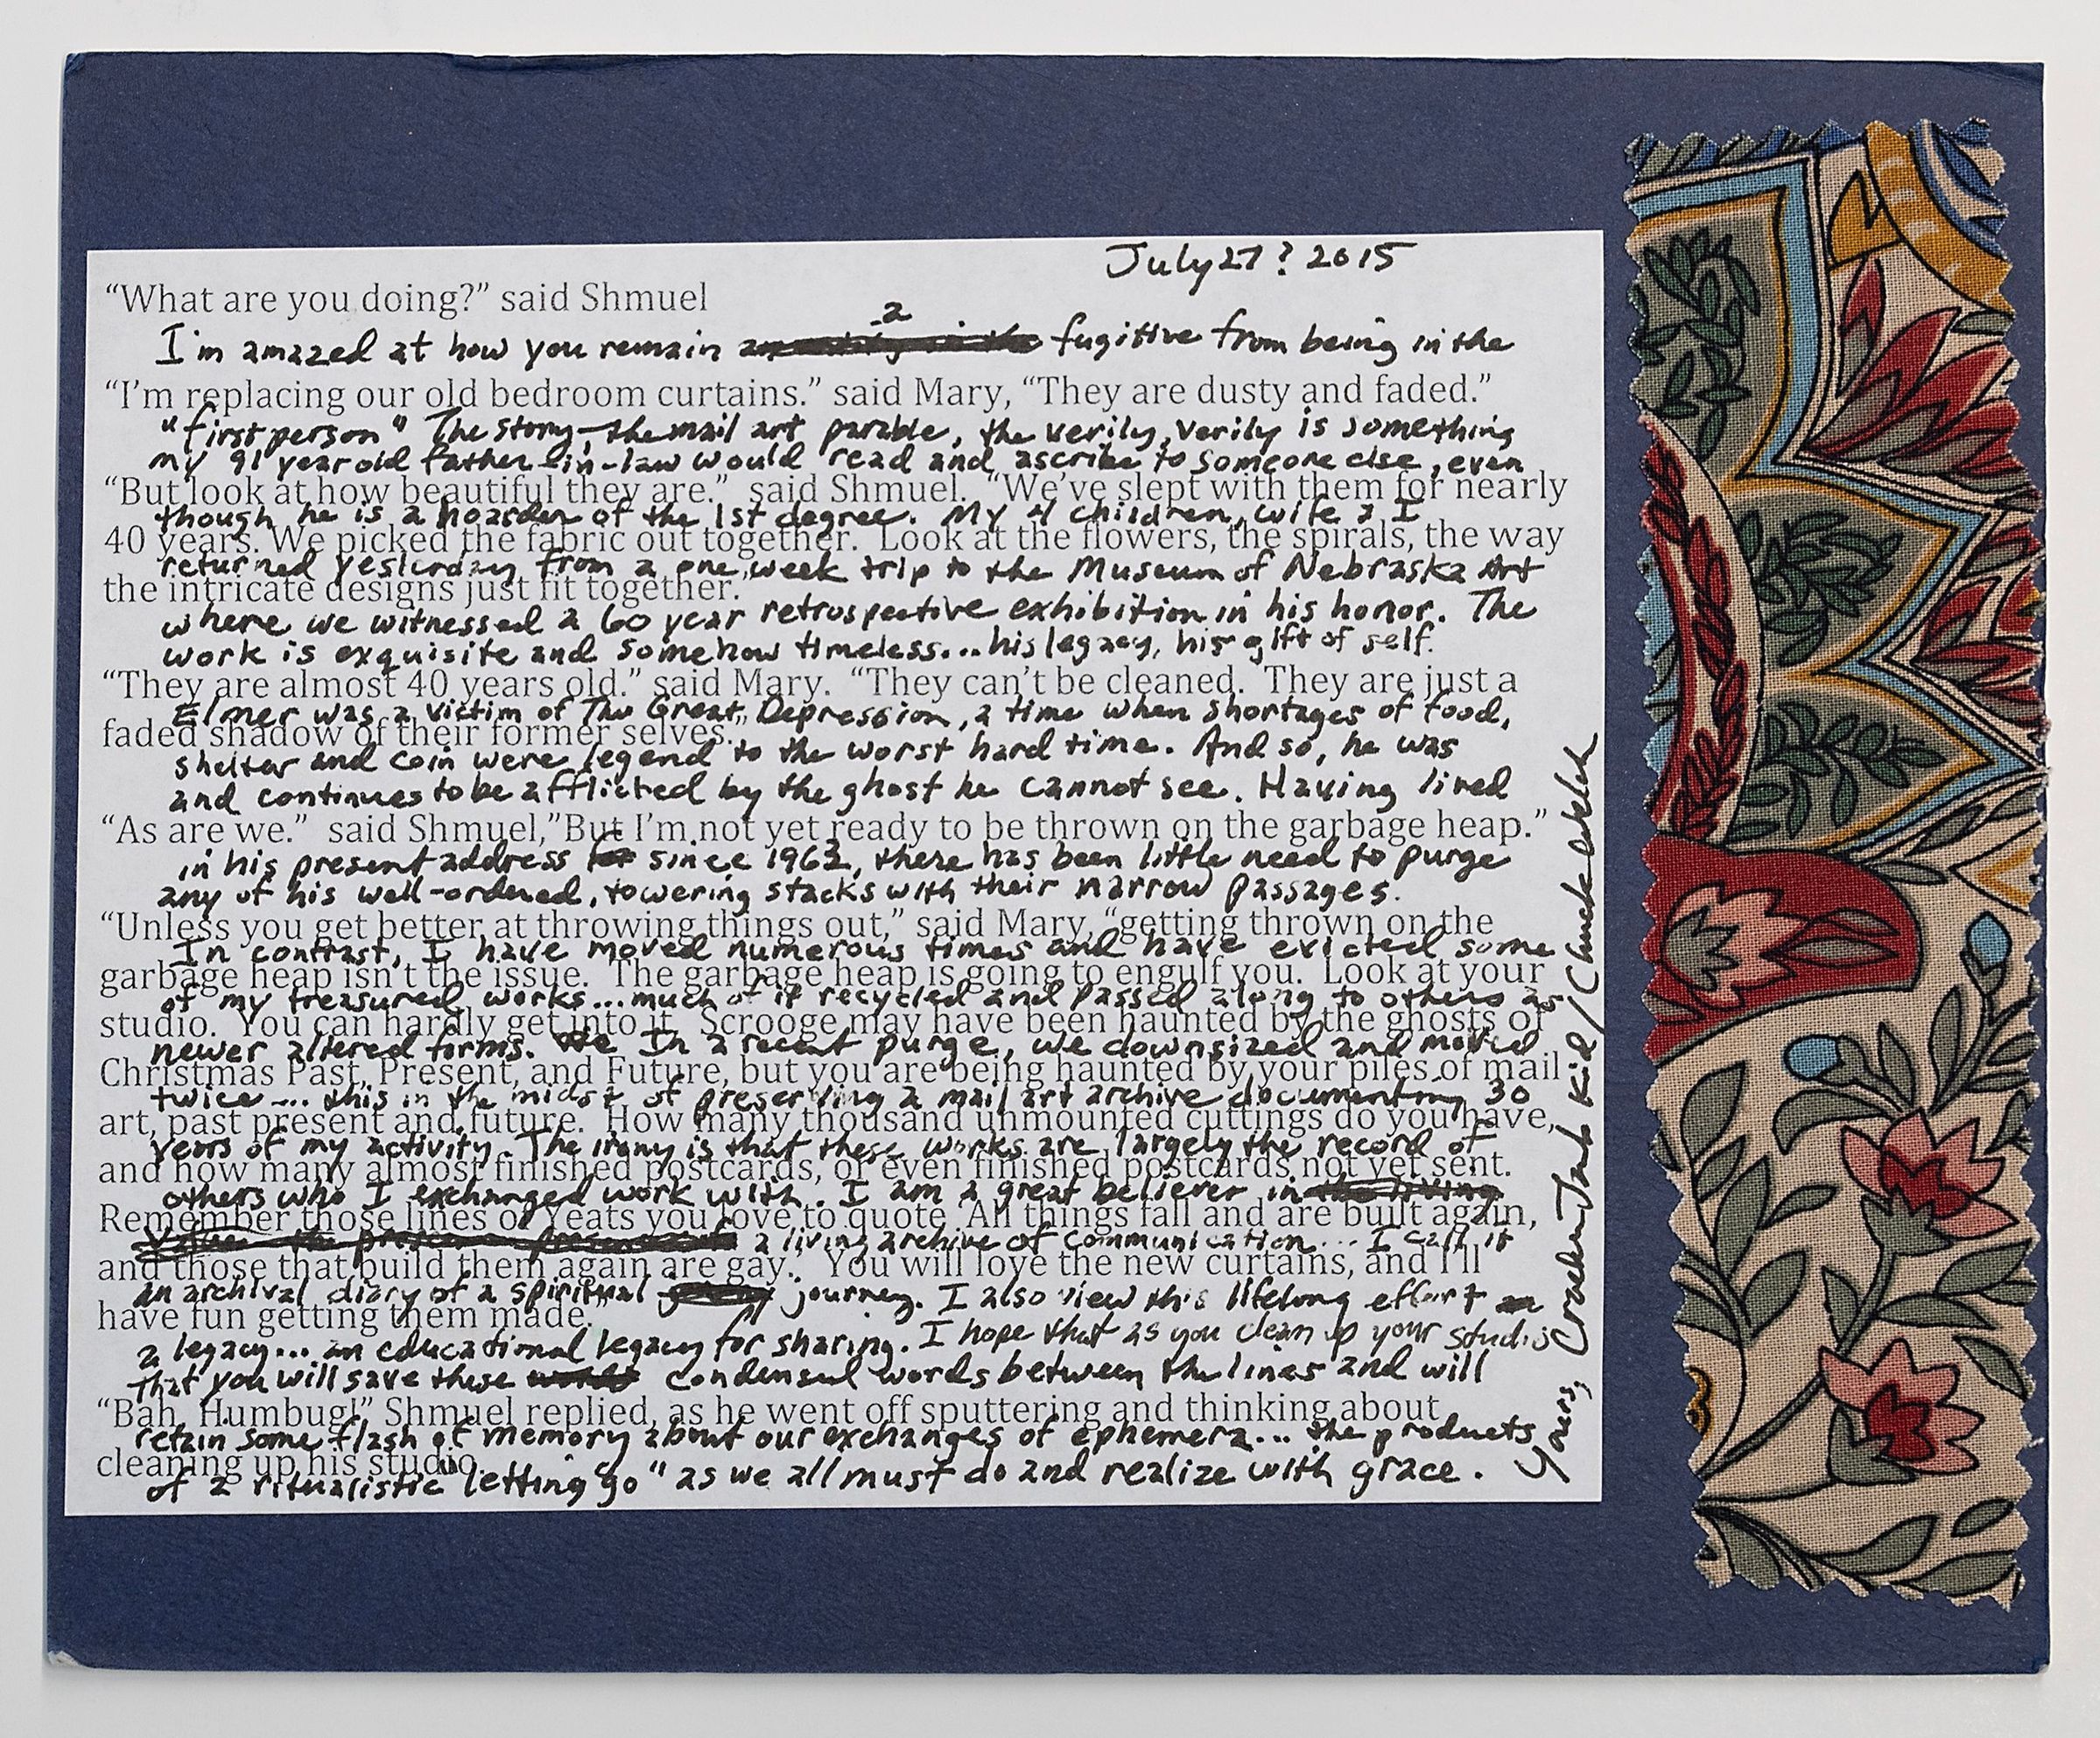 July 27? 2015
“What are you doing?” said Shmuel
a
I'm amazed at how you remain fugitive from being in the
“I’m replacing our old bedroom curtains.” said Mary, “They are dusty and faded.”
"first person" The story, the mail art parable, the verily, verily is something
my 91 year old father-in-law would read and ascribe to someone else, even
“But look at how beautiful they are.” said Shmuel. “We’ve slept with them for nearly
though he is a hoarder of the 1st degree. My 4 children, wife & I
40 years. We picked the fabric out together. Look at the flowers, the spirals, the way
returned yesterday from a one week trip to the Museum of Nebraska Art
the intricate designs just fit together.”
where we witnessed a 60 year retrospective exhibition in his honor. The
work is exquisite and somehow timeless... his legacy, his gift of self.
“They are almost 40 years old.” said Mary. “They can’t be cleaned. They are just a
Elmer was a victim of The Great Depression, a time when shortages of food,
faded shadow of their former selves.”
shelter and coin were legend to the worst hard time. And so, he was
and continues to be afflicted by the ghost he cannot see. Having lived
“As are we.” said Shmuel,”But I’m not yet ready to be thrown on the garbage heap.”
in his present address since 1963, there has been little need to purge
any of his well-ordered, towering stacks with their narrow passages.
“Unless you get better at throwing things out,” said Mary, “getting thrown on the
In contrast, I have moved numerous times and have evicted some
garbage heap isn’t the issue. The garbage heap is going to engulf you. Look at your
of my treasured works... much of it recycled and passed along to others as
studio. You can hardly get into it. Scrooge may have been haunted by the ghosts of
newer altered forms. We In a recent purge, we downsized and moved
Christmas Past, Present, and Future, but you are being haunted by your piles of mail
twice ... this in the midst of preserving a mail art archive documenting 30
art, past present and future. How many thousand unmounted cuttings do you have,
years of my activity. The irony is that these works are largely the record of
and how many almost finished postcards, or even finished postcards not yet sent.
others who I exchanged work with. I am a great believer in the living
Remember those lines of Yeats you love to quote ‘All things fall and are built again,
a living archive of communication... I call it
and those that build them again are gay.’ You will love the new curtains, and I’ll
an archival diary of a spiritual journey. I also view this lifelong effort
have fun getting them made.”
a legacy... an educational legacy for sharing. I hope that as you clean up your studio
that you will save these condensed words between the lines and will
“Bah, Humbug!” Shmuel replied, as he went off sputtering and thinking about
retain some flash of memory about our exchanges of ephemera... the products
cleaning up his studio.
of a ritualistic "letting go" as we all must do and realize with grace.
Yours, CrackerJack Kid / Chuck Welch